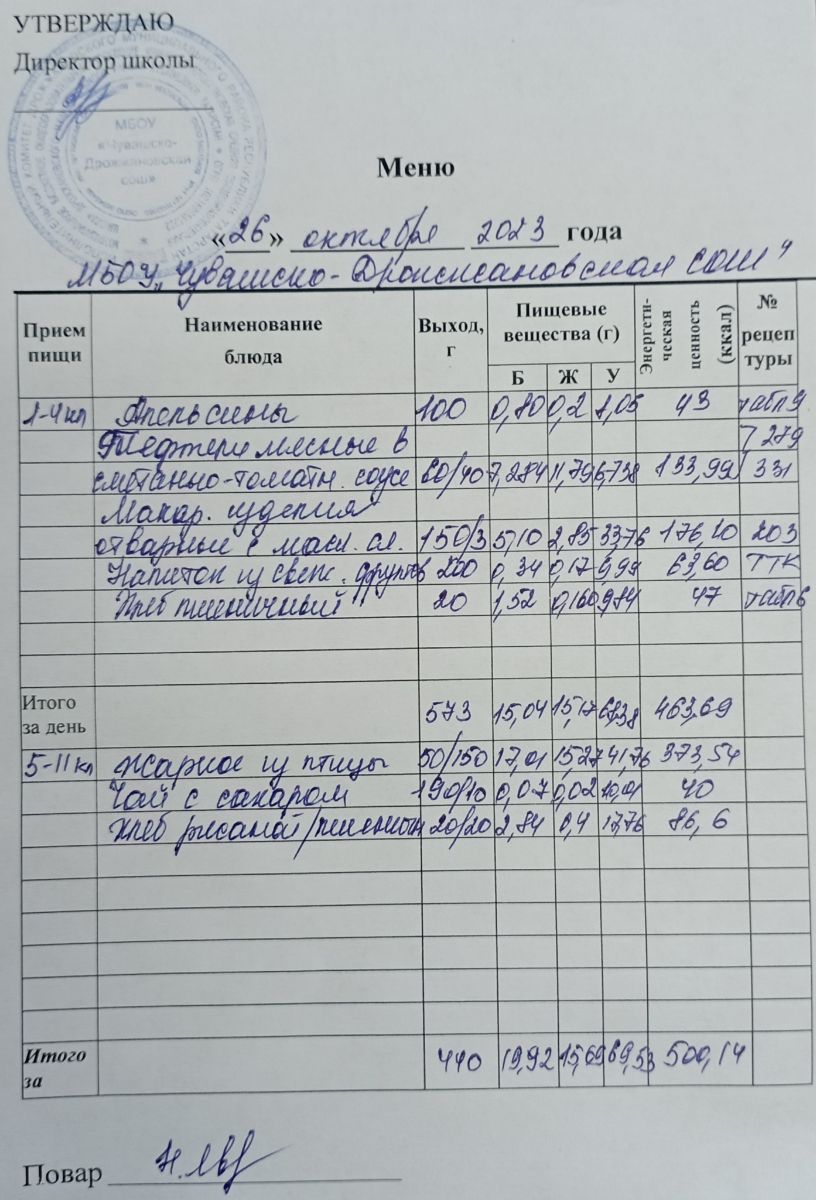 УТВЕРЖДАЮ
Директор школы
МБОУ
«Чувашско-
Дрожжановская
сош»
Меню
«26» октября 2023 года
МБОУ „Чувашско-Дрожжановская СОШ"
Прием пищи Наименование блюда Выход, г Пищевые вещества (г) Б Ж У Энергети-ческая ценность (ккал) № рецеп туры
1-4 кл Апельсины 100 0,80 0,2 1,05 43 табл 9
Тефтери мясные в 7 279
сметанно-томатн. соусе 60/40 7,284 11,79 6,738 133,99 331
Макар. изделия
отварные с масл. сл. 150/3 5,10 2,85 33,76 176,10 203
Напиток из свеж. фруктов 200 0,34 0,17 9,99 63,60 ТТК
Хлеб пшеничный 20 1,52 0,160 9,84 47 табл 6
Итого за день 573 15,04 15,17 68,38 463,69
5-11 кл Жаркое из птицы 50/150 17,01 15,27 41,76 373,54
Чай с сахаром 190/10 0,07 0,02 10,01 40
Хлеб ржаной/пшеничн 20/20 2,84 0,4 17,76 86,6
Итого за 440 19,92 15,69 69,53 500,14
Повар